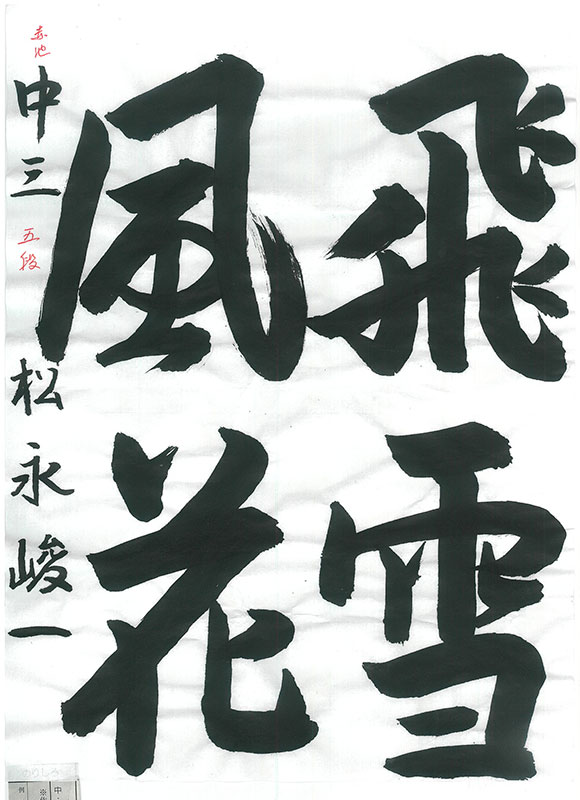 飛雪
風花
赤池
中三 五段 松永峻一
中
※
例